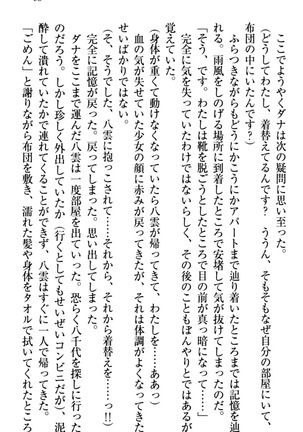 ここでようやくダナは次の疑問に思い至った。
（どうしてわたし、着替えてるんです？　ううん、そもそもなぜ自分の部屋にいて、
布団の中にいたんです？）
ふらつきながらもどうにかこうにかアパートまで辿り着いたところまでは記憶を辿
れる。雨風をしのげる場所に到着したところで安堵して気が抜けてしまった。
（そう、です。わたしは靴を脱ごうとしたところで目の前が真っ暗になって……）
完全に気を失っていたわけではないらしく、その後のこともぼんやりとではあるが
覚えていた。
（身体が重くて動けなくなっていたら八雲が帰ってきて、わたしを……ああっ）
血の気が失せていた少女の顔に赤みが戻ってきたが、それは体調がよくなってきた
せいばかりではない。
（そうです、八雲に抱っこされて……それから、それから着替えを……っ!!）
完全に記憶が戻った。思い出してしまった。
ダナをここまで運んだ八雲は一度部屋を出ていった。恐らく八千代を探しに行った
のだろう。しかし珍しく外出していたか（行くとしてもせいぜいコンビニだが）、泥
酔して潰れていたかで連れてくることができず、八雲はすぐに一人で帰ってきた。
「ごめん」と謝りながら布団を敷き、濡れた髪や身体をタオルで拭いてくれたところ